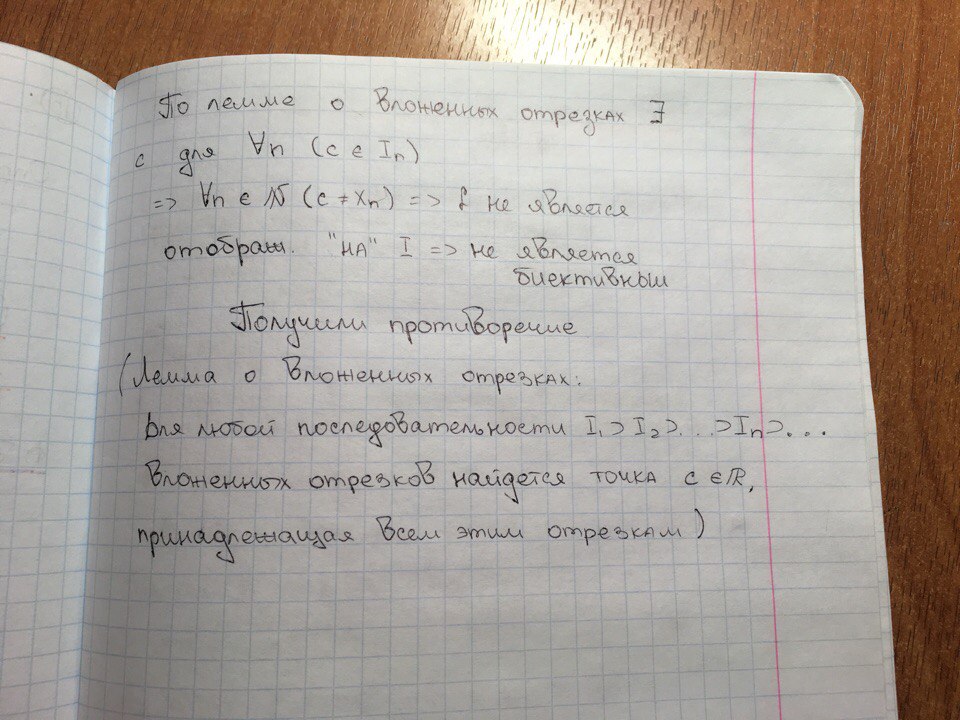 По лемме о вложенных отрезках ∃
c для ∀n (c ∈ In)
=> ∀n ∈ N (c ≠ xn) => f не является
отображ. "НА" I => не является
биективным
Получили противоречие
(Лемма о вложенных отрезках:
Для любой последовательности I₁ ⊃ I₂ ⊃ ... ⊃ In ⊃ ...
вложенных отрезков найдется точка c ∈ R,
принадлежащая всем этим отрезкам)